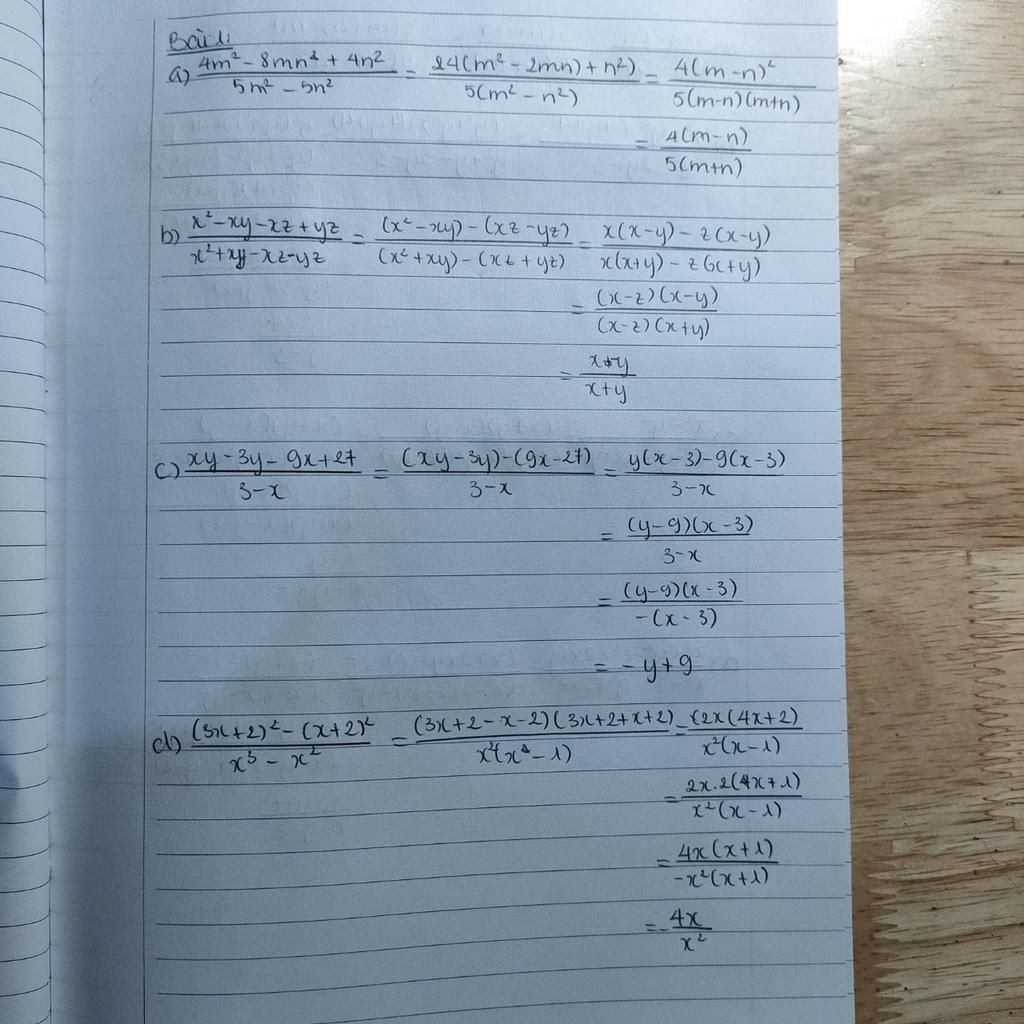 Bài 1:
a) (4m² - 8mn² + 4n²)/(5m² - 5n²) = (24(m² - 2mn) + n²)/(5(m² - n²)) = (4(m - n)²)/(5(m-n)(m+n))
= (4(m-n))/(5(m+n))
b) (x² - xy - xz + yz)/(x² + xy - xz - yz) = ((x² - xy) - (xz - yz))/((x² + xy) - (xz + yz)) = (x(x-y) - z(x-y))/(x(x+y) - z(x+y))
= ((x-z)(x-y))/((x-z)(x+y))
= /(x+y)
c) (xy - 3y - 9x + 27)/(3 - x) = ((xy - 3y) - (9x - 27))/(3 - x) = (y(x - 3) - 9(x - 3))/(3 - x)
= ((y-9)(x-3))/(3-x)
= ((y-9)(x-3))/(-(x-3))
= -y + 9
d) ((3x+2)² - (x+2)²)/(x³ - x²) = ((3x+2-x-2)(3x+2+x+2))/( - 1) = (2x(4x+2))/(x²(x-1))
= (2x.2(4x+1))/(x²(x-1))
= (4x(x+1))/(-x²(x+1))
= -4x/x²